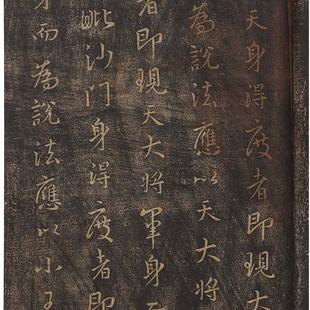 天身得度者即現大
為說法應以天大將
者即現天大將軍身
毗沙門身得度者即
而為說法應以小王